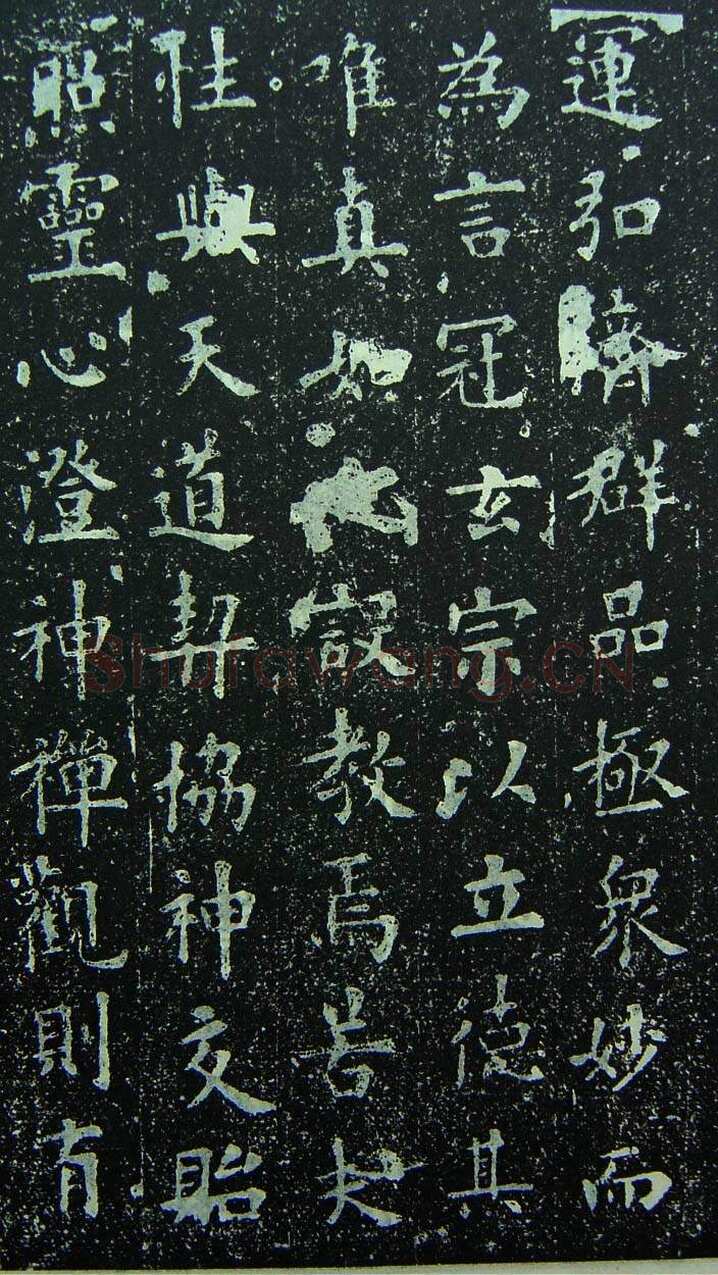 運弘濟群品極衆妙而
為言冠玄宗以立德其
唯真如設教焉若夫
性與天道契協神交貽
照靈心澄神禪觀則有
Shufawang.CN